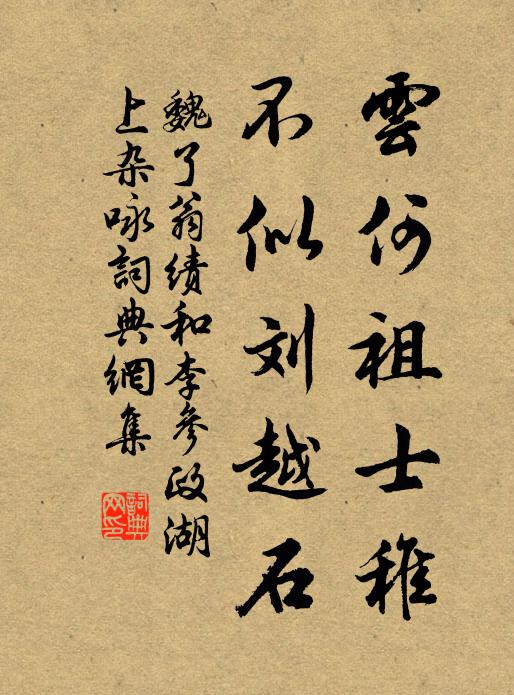 雲何祖士稚
不似刘越石
魏了翁績和李參政湖
上杂咏詞典網集
詞典網印